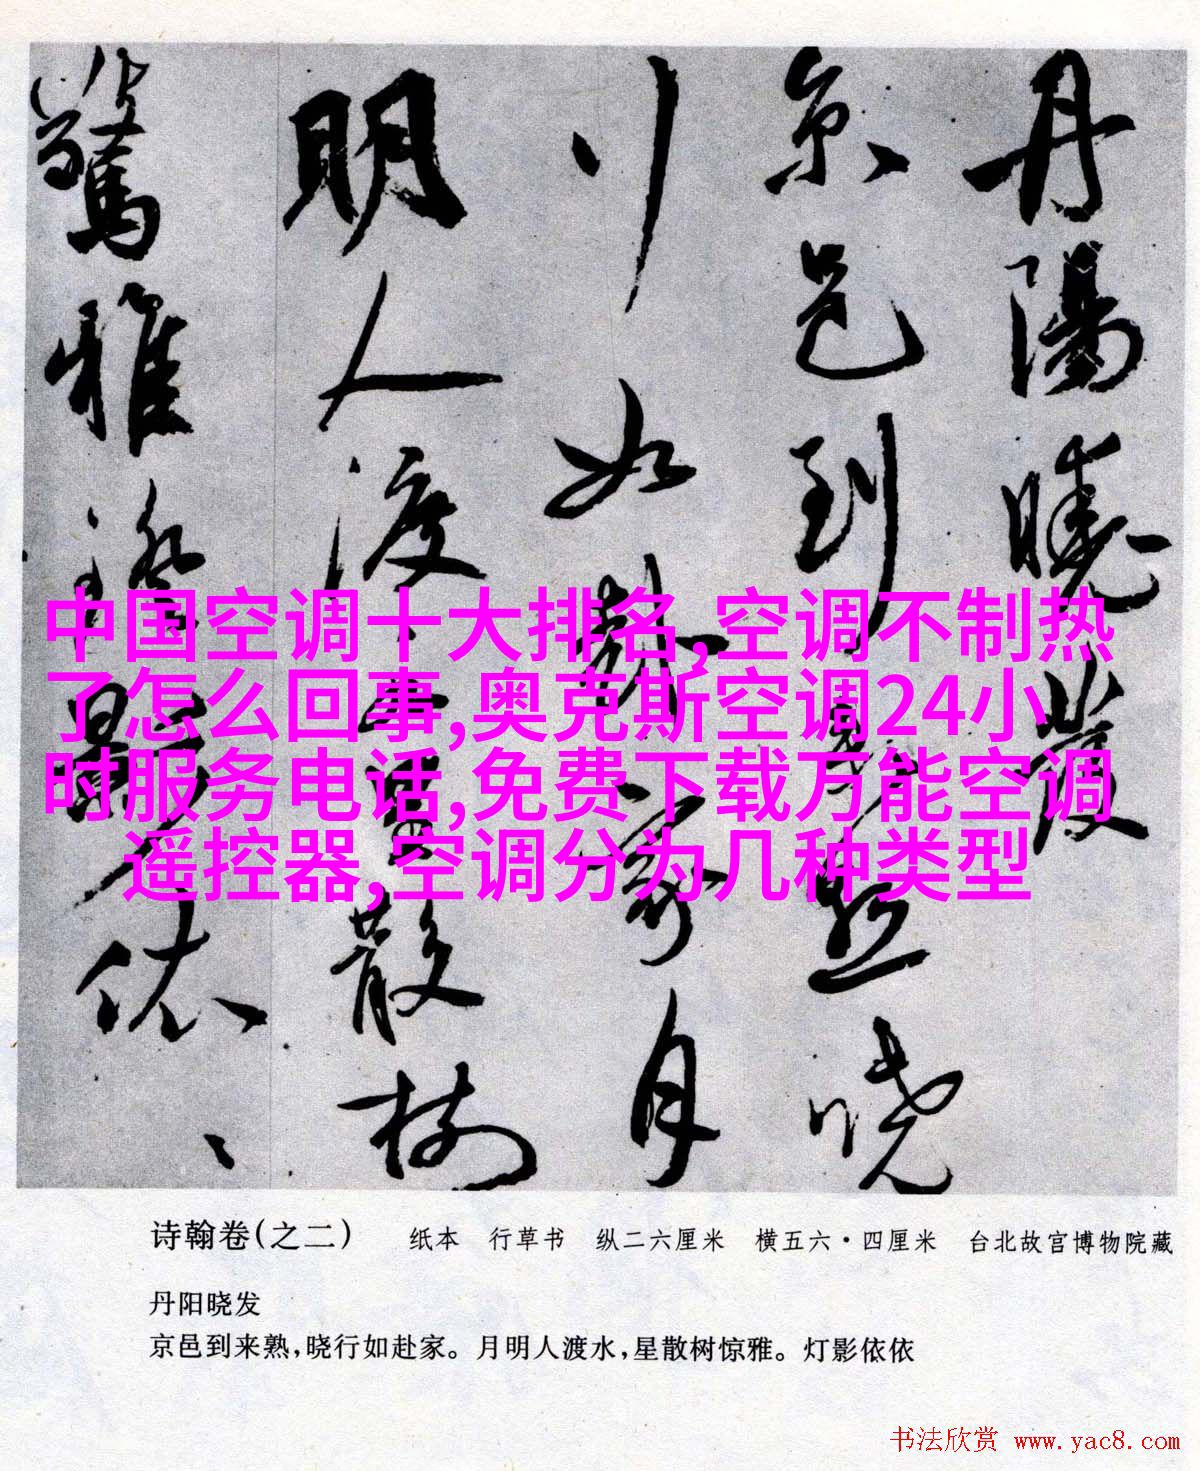 丹陽曉發
京邑到来熟曉
行如赴家月
明人渡水星散樹
驚雅燈影依依
中国空调十大排名,空调不制热
了怎么回事,奥克斯空调24小
时服务电话,免费下载万能空调
遥控器,空调分为几种类型
诗翰卷(之二) 纸本 行草书 纵二六厘米 横五六·四厘米 台北故宫博物院藏
丹阳晓发
京邑到来熟,晓行如赴家。月明人渡水,星散树惊雅。灯影依依
书法欣赏 www.yac8.com